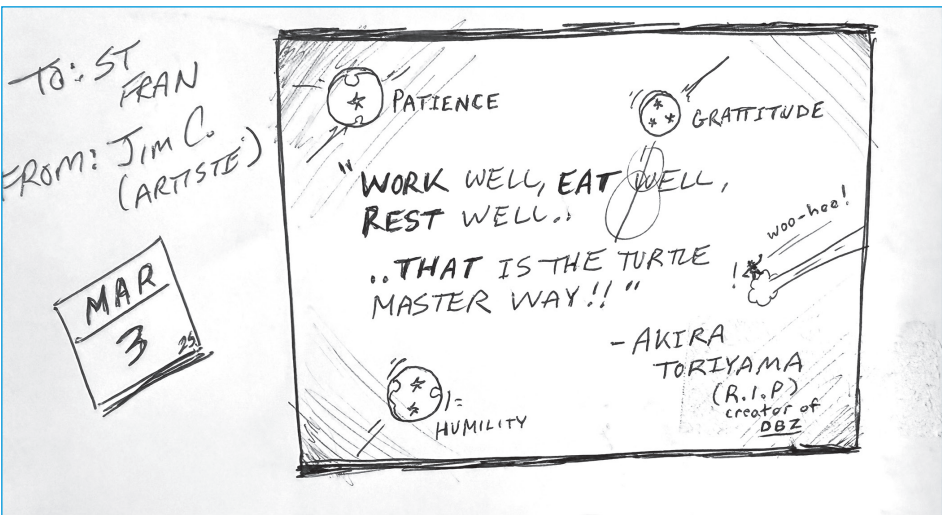 TO: ST
FRAN
FROM: JIM C.
(ARTISTE)
MAR
3
25
PATIENCE
GRATTITUDE
"WORK WELL, EAT WELL,
REST WELL..
..THAT IS THE TURTLE
MASTER WAY!!"
woo-hee!
!
-AKIRA
TORIYAMA
(R.I.P)
creator of
DBZ
HUMILITY